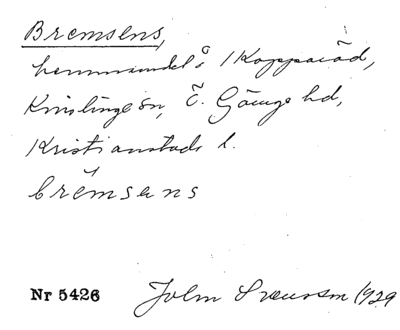 Bremsens,
hemmansdel i Kopparöd,
Knislinge sn, Ö. Göinge hd,
Kristianstads l.
brèmsens
Nr 5426 John Svensson 1929